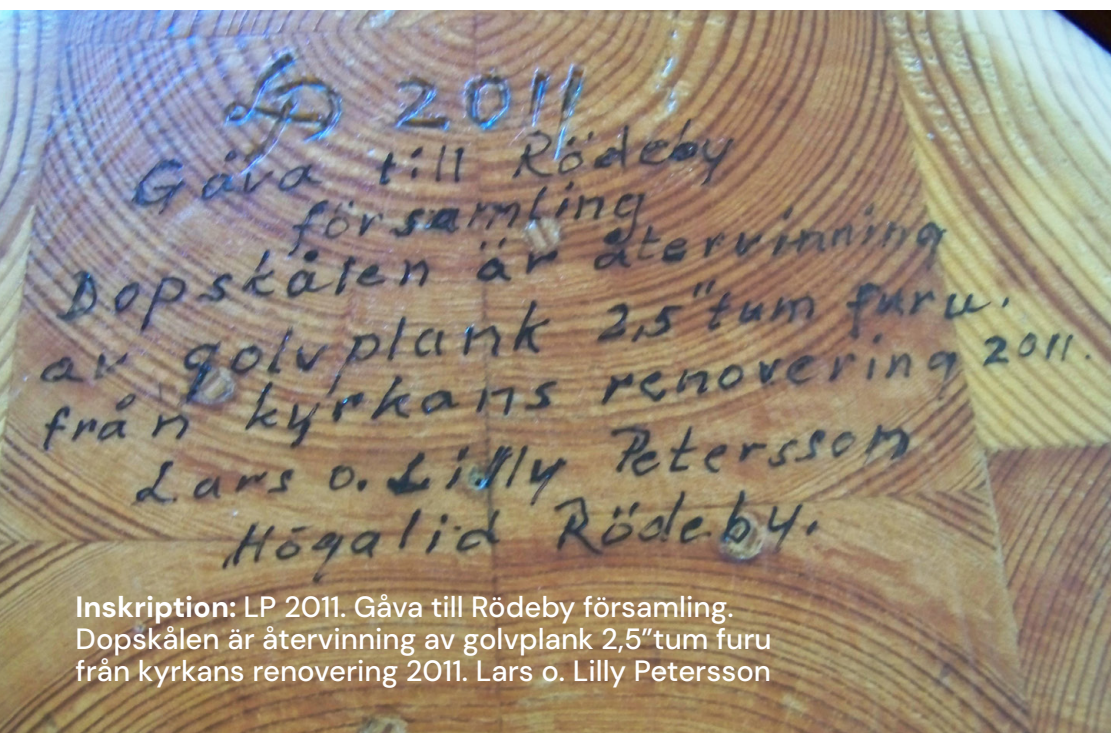 LP 2011
Gåva till Rödeby
församling
Dopskålen är återvinning
av golvplank 2,5"tum furu.
från kyrkans renovering 2011.
Lars o. Lilly Petersson
Högalid Rödeby.
Inskription: LP 2011. Gåva till Rödeby församling.
Dopskålen är återvinning av golvplank 2,5”tum furu
från kyrkans renovering 2011. Lars o. Lilly Petersson